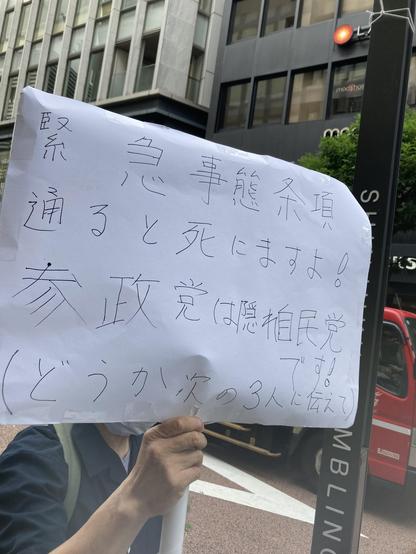 緊急事態条項
通ると死にますよ!
参政党は隠れ自民党
です!
(どうか次の3人に伝えて)
MBLING